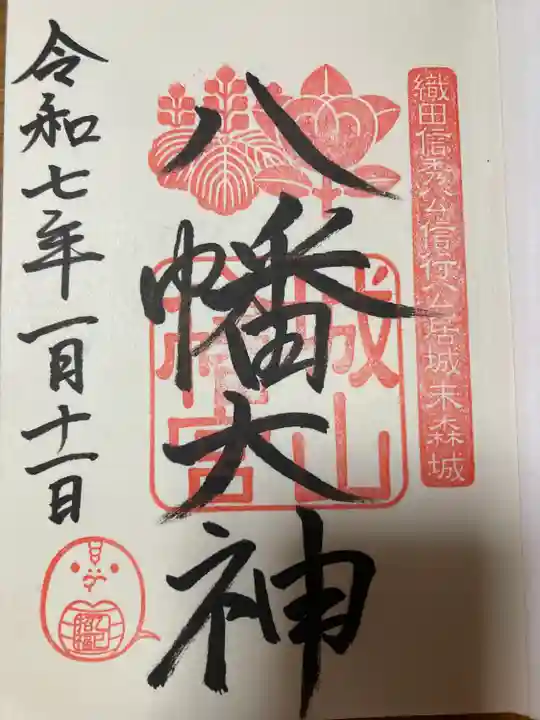 織田信秀公信行公居城末森城
八幡大神
城山
八幡宮
令和七年一月十一日